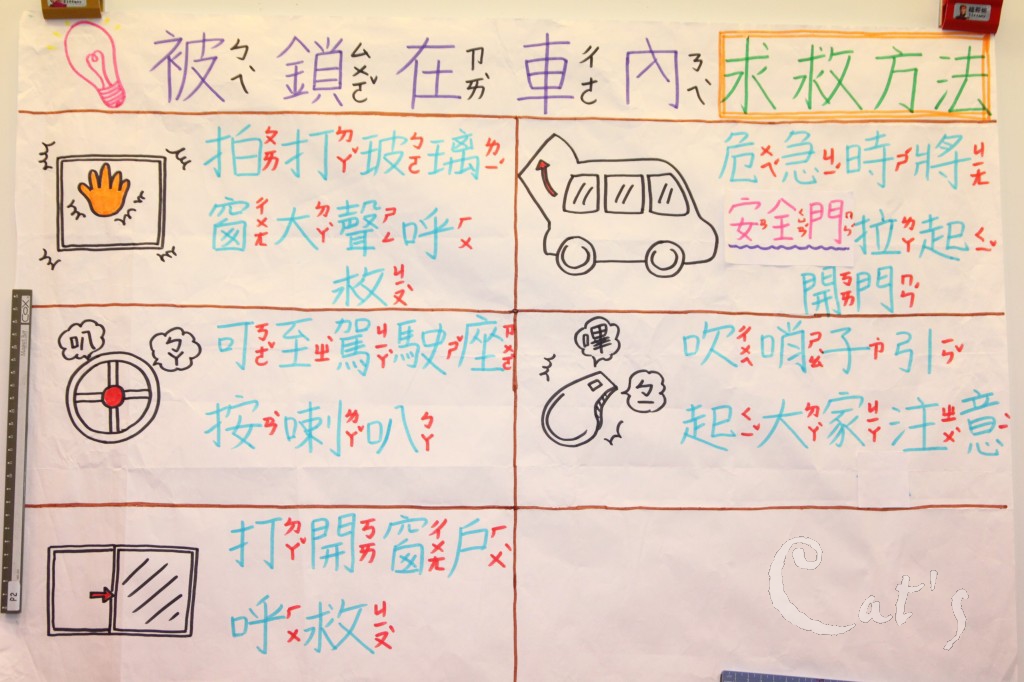 被ㄅㄟˋ鎖ㄙㄨㄛˇ在ㄗㄞˋ車ㄔㄜ內ㄋㄟˋ求救方法
拍ㄆㄞ打ㄉㄚˇ玻ㄅㄛ璃ㄌㄧˊ
窗ㄔㄨㄤ大ㄉㄚˋ聲ㄕㄥ呼ㄏㄨ
救ㄐㄧㄡˋ
危ㄨㄟˊ急ㄐㄧˊ時ㄕˊ將ㄐㄧㄤ
安ㄢ全ㄑㄩㄢˊ門ㄇㄣˊ拉ㄌㄚ起ㄑㄧˇ
開ㄎㄞ門ㄇㄣˊ
叭
ㄅㄚ
可ㄎㄜˇ至ㄓˋ駕ㄐㄧㄚˋ駛ㄕˇ座ㄗㄨㄛˋ
按ㄢˋ喇ㄌㄚˇ叭ㄅㄚ
嗶
ㄅㄧ
吹ㄔㄨㄟ哨ㄕㄠˋ子ㄗ˙引ㄧㄣˇ
起ㄑㄧˇ大ㄉㄚˋ家ㄐㄧㄚ注ㄓㄨˋ意ㄧˋ
打ㄉㄚˇ開ㄎㄞ窗ㄔㄨㄤ戶ㄏㄨˋ
呼ㄏㄨ救ㄐㄧㄡˋ
Cat's
COX
P2